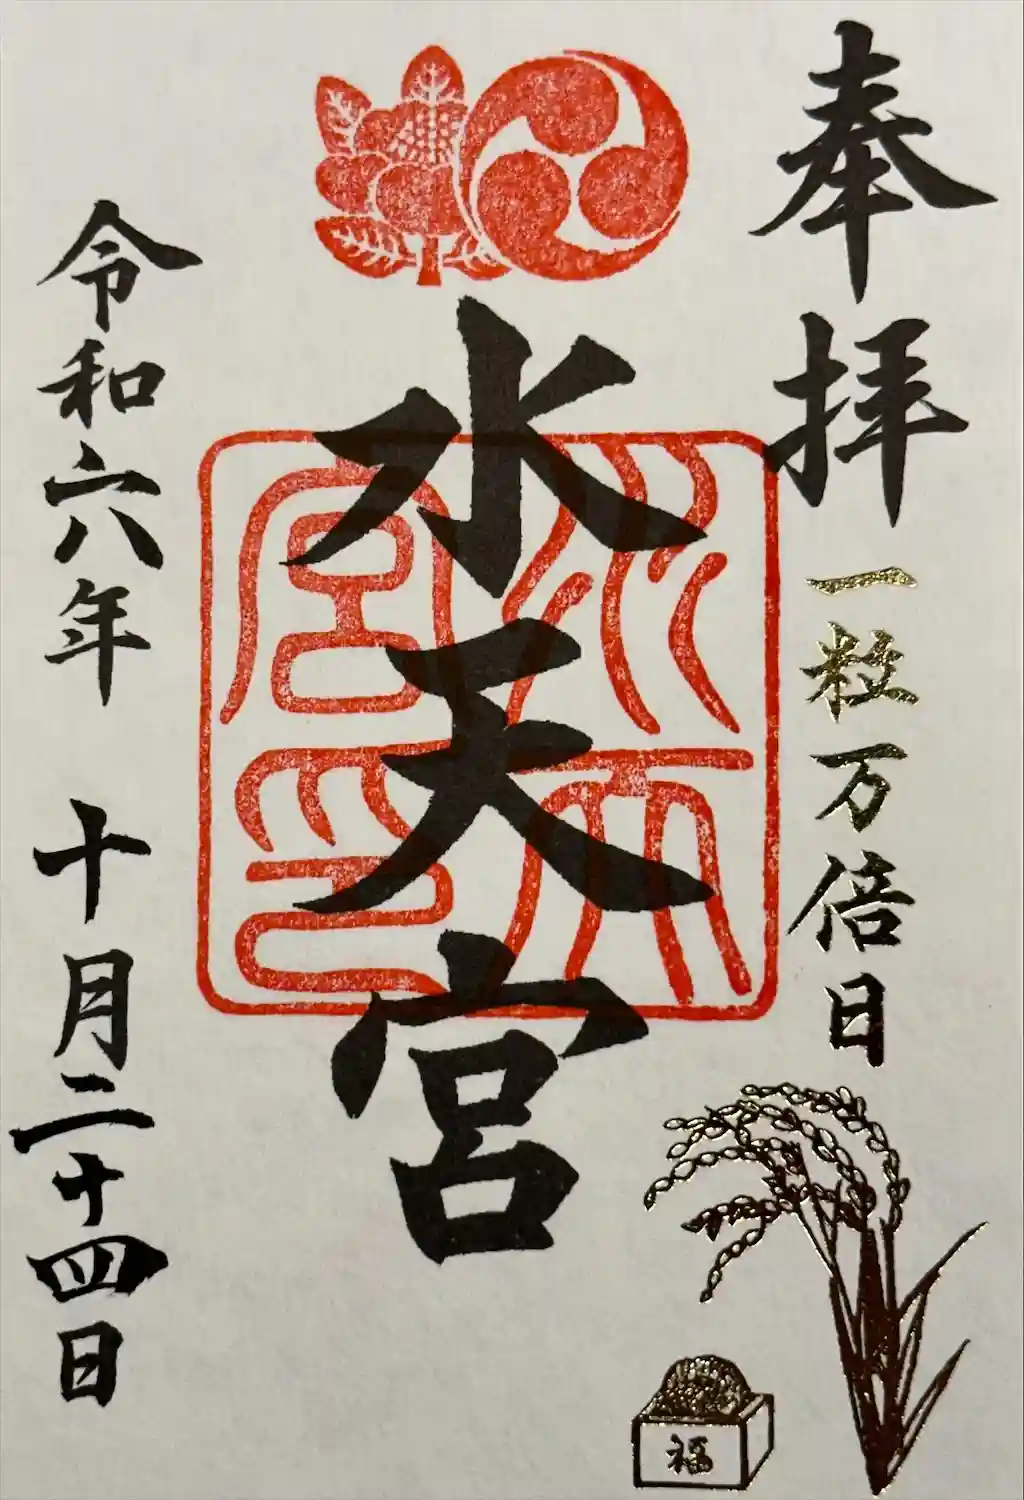 奉拝
一粒万倍日
福
水天宮
水天宮印
令和六年 十月二十四日